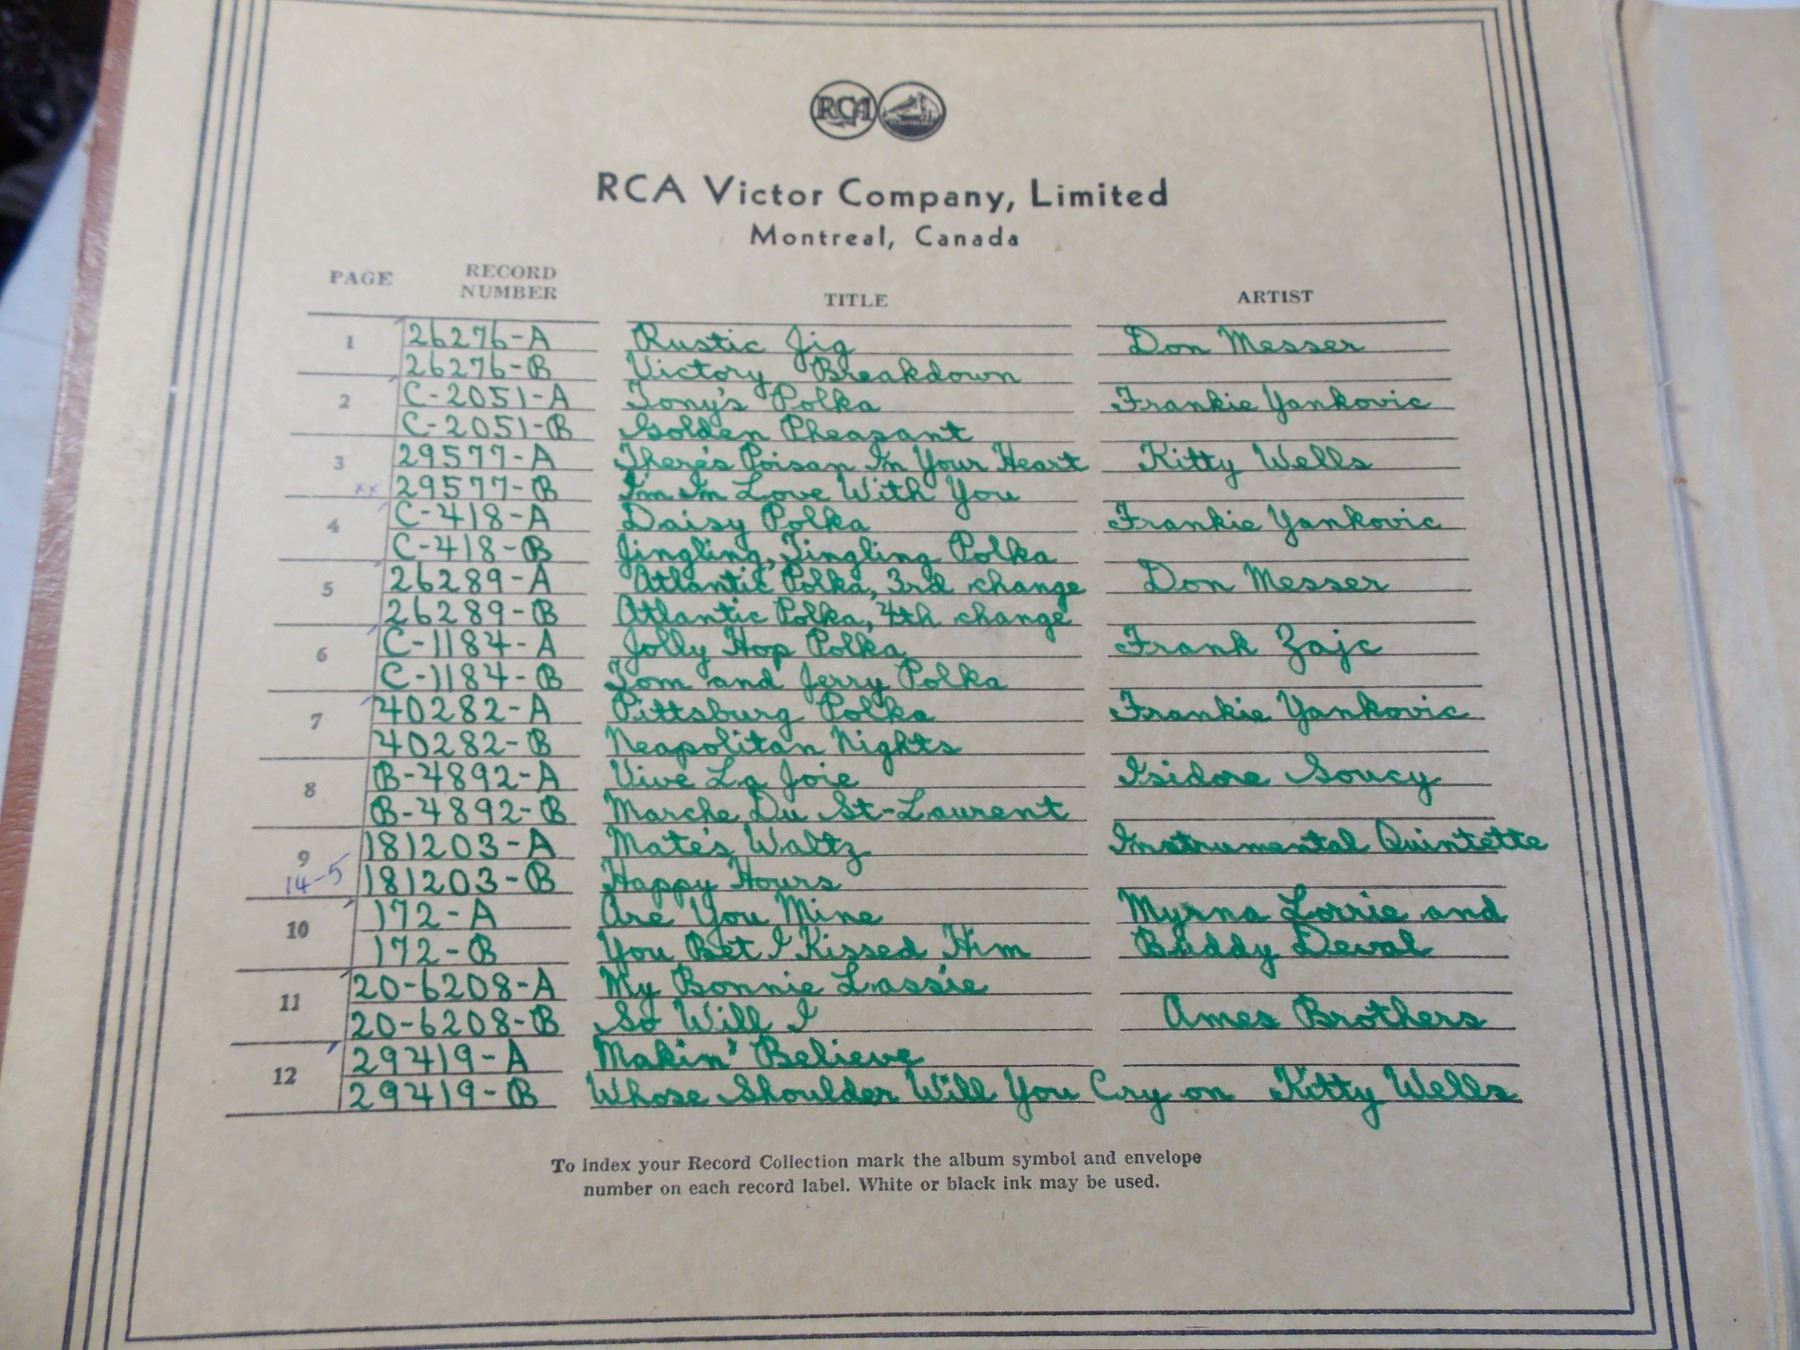 RCA
RCA Victor Company, Limited
Montreal, Canada
PAGE RECORD NUMBER TITLE ARTIST
1 26276-A Rustic Jig Don Messer
26276-B Victory Breakdown
2 C-2051-A Tony's Polka Frankie Yankovic
C-2051-B Golden Pheasant
3 29577-A There's Poison In Your Heart Kitty Wells
xx 29577-B I'm In Love With You
4 C-418-A Daisy Polka Frankie Yankovic
C-418-B Jingling, Tingling Polka
5 26289-A Atlantic Polka, 3rd change Don Messer
26289-B Atlantic Polka, 4th change
6 C-1184-A Jolly Hop Polka Frank Zajc
C-1184-B Tom and Jerry Polka
7 40282-A Pittsburg Polka Frankie Yankovic
40282-B Neapolitan Nights
8 B-4892-A Vive La Joie Isidore Soucy
B-4892-B Marche Du St-Laurent
9 181203-A Mate's Waltz Instrumental Quintette
14-5 181203-B Happy Hours
10 172-A Are You Mine Myrna Lorrie and
172-B You Bet I Kissed Him Buddy Deval
11 20-6208-A My Bonnie Lassie
20-6208-B So Will I Ames Brothers
12 29419-A Makin' Believe
29419-B Whose Shoulder Will You Cry on Kitty Wells
To index your Record Collection mark the album symbol and envelope
number on each record label. White or black ink may be used.